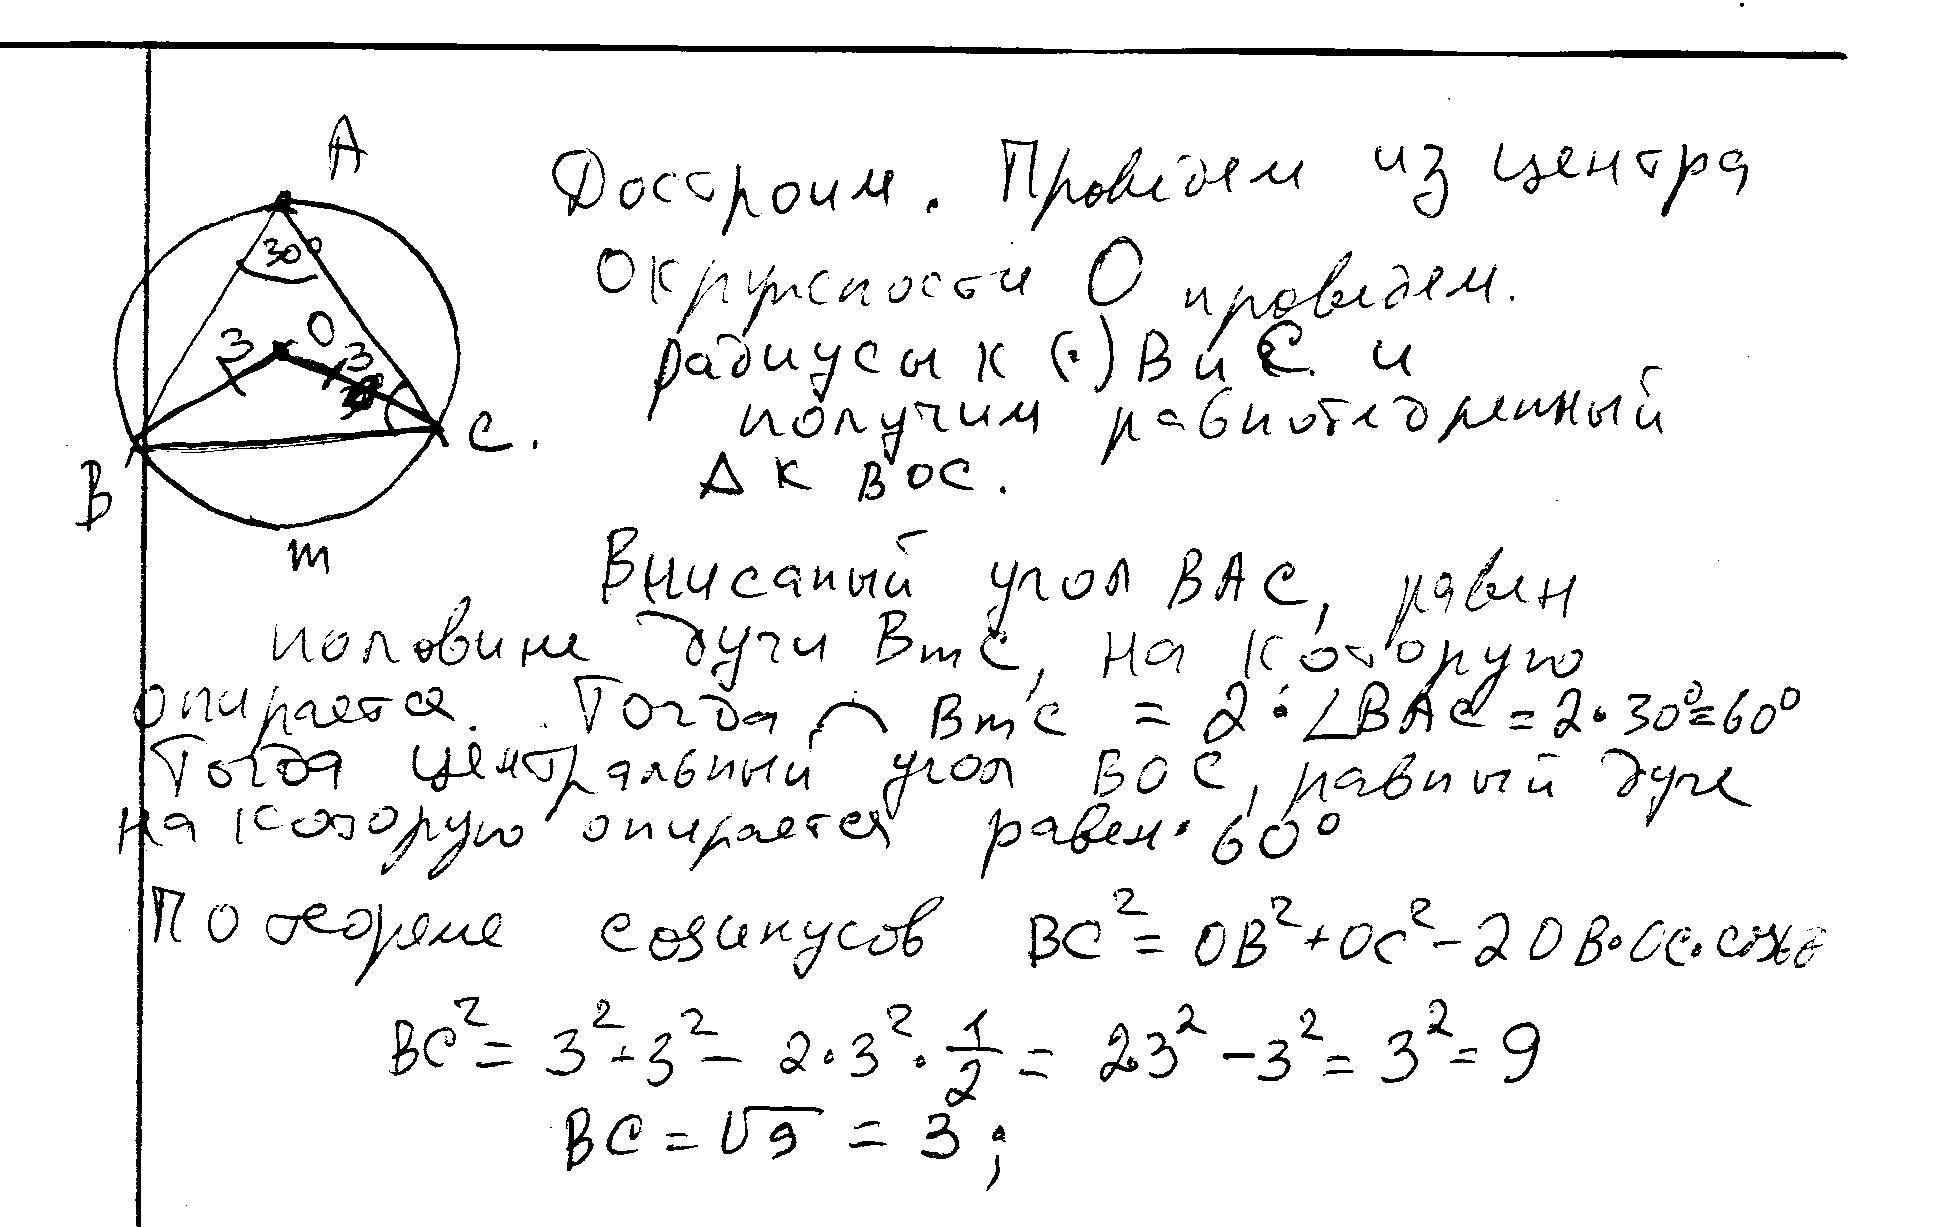 A
30°
O
3
3
B
C.
m
Достроим. Проведем из центра
Окружности O проведем.
радиусы к (·) B и C. и
получим равнобедренный
Δ К BOC.
Вписаный угол BAC, равен
половине дуги BmC, на которую
опирается. Тогда ⌒ BmC = 2·∠BAC = 2·30°=60°
Тогда центральный угол BOC, равный дуге
на которую опирается равен· 60°
По теореме косинусов BC² = OB²+OC²-2OB·OC·cos
BC² = 3²+3²- 2·3²·1/2 = 2·3²-3²= 3²= 9
BC = √9 = 3;